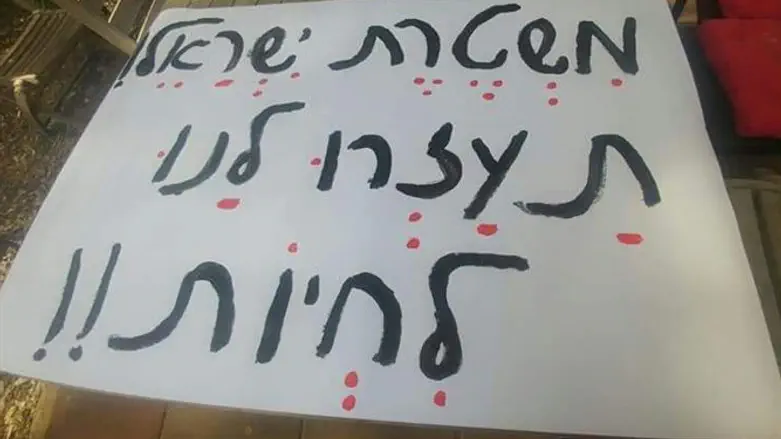 מִשְׁטֶרֶת יִשְׂרָאֵל!
תַעַזְרוּ לָנוּ
לִחְיוֹת!!